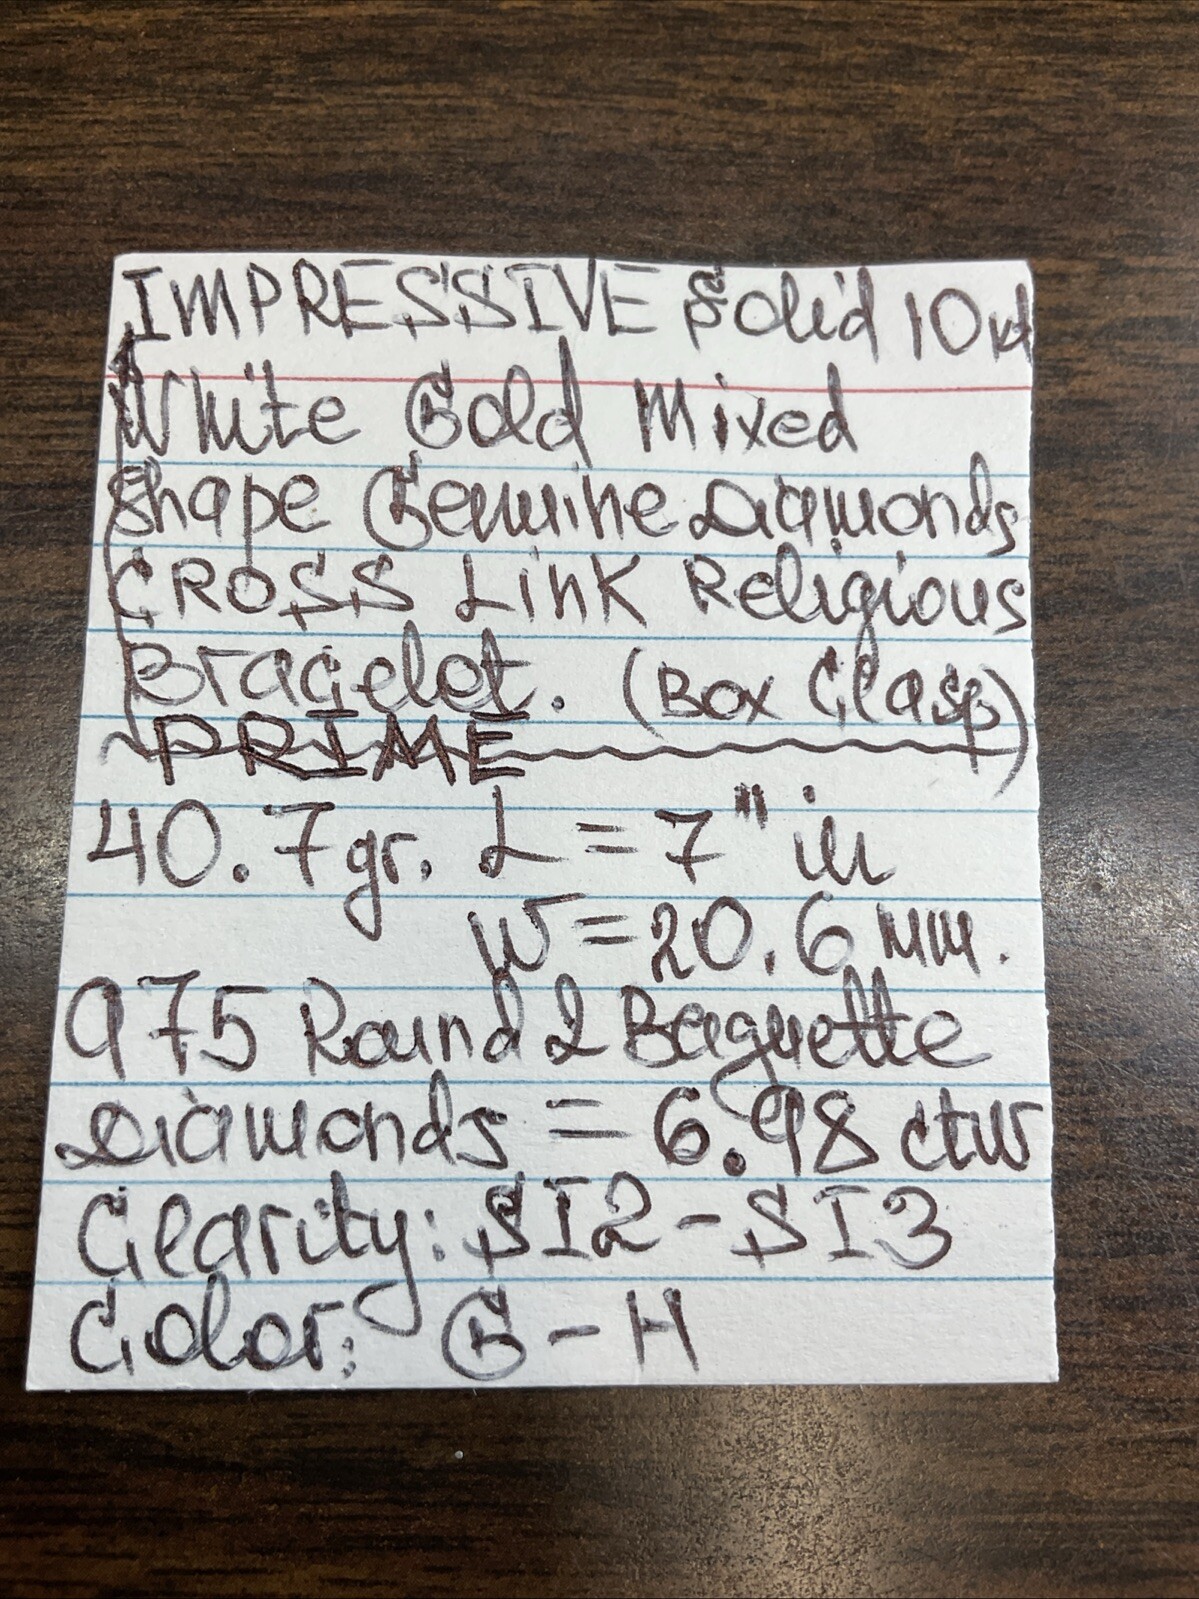 IMPRESSIVE Solid 10kt
White Gold Mixed
Shape Genuine Diamonds
CROSS Link Religious
Bracelet. (Box Clasp)
PRIME
40.7gr. L = 7" in
W = 20.6 mm.
975 Round 2 Baguette
Diamonds = 6.98 ctw
Clarity: SI2 - SI3
Color: G - H